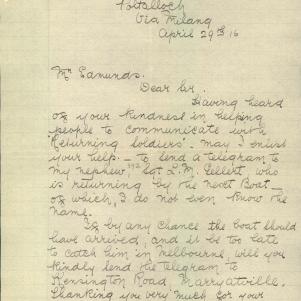 Poltalloch
Via Milang
April 29th 16
Mr Edmunds.
Dear Sir.
Having heard
of your kindness in helping
people to communicate with
Returning Soldiers. May I enlist
your help. – to send a telegram to
my nephew, Sgt L. M. Gellert, who
is returning by the next Boat –
of which, I do not even know the
name.
If by any chance the boat should
have arrived, and it be too late
to catch him in Melbourne, will you
kindly send the telegram to
Kensington Road Marryatville.
Thanking you very much for your